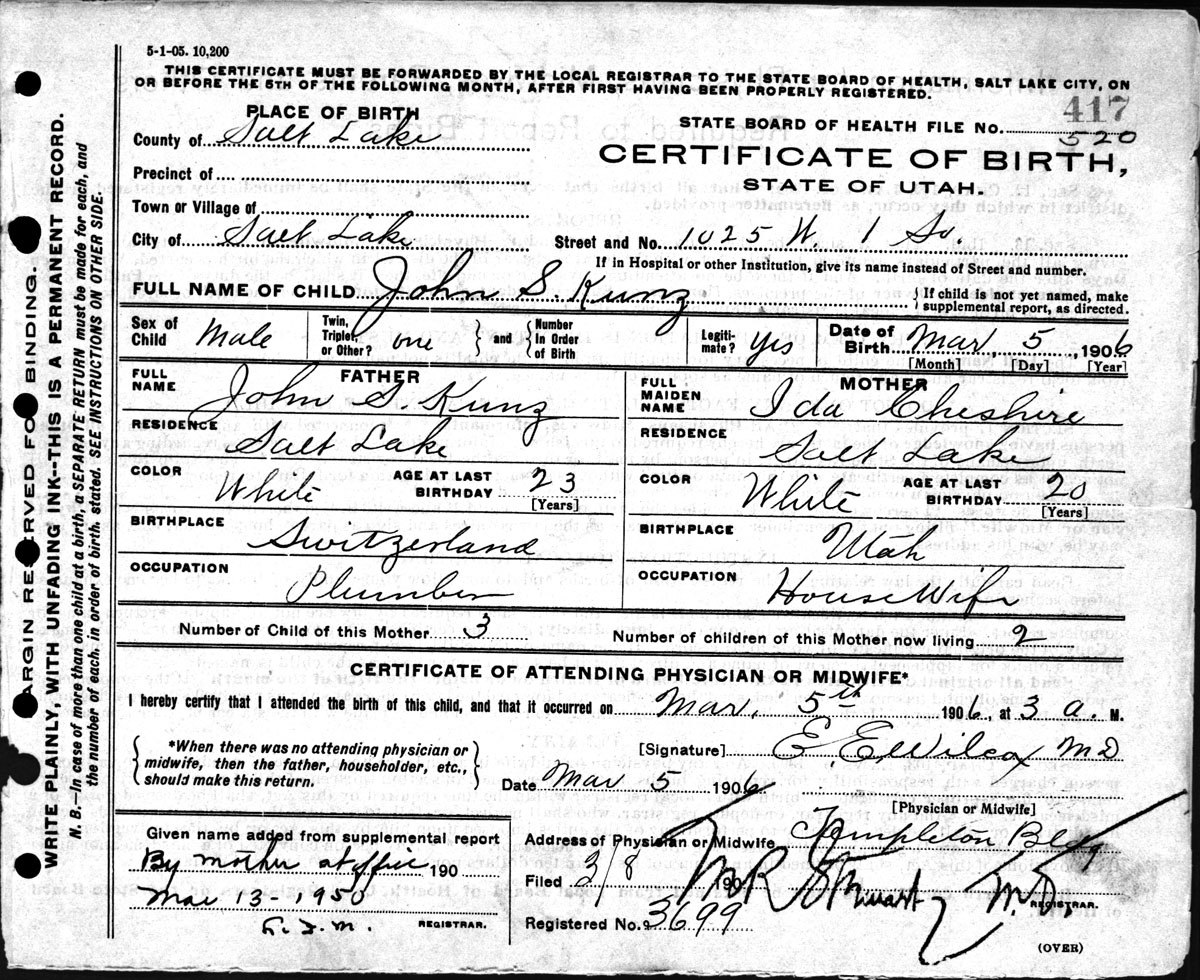 5-1-05. 10,200
THIS CERTIFICATE MUST BE FORWARDED BY THE LOCAL REGISTRAR TO THE STATE BOARD OF HEALTH, SALT LAKE CITY, ON
OR BEFORE THE 5TH OF THE FOLLOWING MONTH, AFTER FIRST HAVING BEEN PROPERLY REGISTERED.
417
PLACE OF BIRTH
STATE BOARD OF HEALTH FILE NO. 520
County of Salt Lake
CERTIFICATE OF BIRTH,
STATE OF UTAH.
Precinct of
Town or Village of
City of Salt Lake Street and No. 1025 W. 1 So.
If in Hospital or other Institution, give its name instead of Street and number.
FULL NAME OF CHILD John S. Kunz { If child is not yet named, make
supplemental report, as directed.
Sex of Child Male Twin, Triplet, or Other? one } and { Number In Order of Birth Legiti-mate? yes Date of Birth Mar. 5, 1906
[Month] [Day] [Year]
FATHER
FULL NAME John S. Kunz
RESIDENCE Salt Lake
COLOR White AGE AT LAST BIRTHDAY 23
[Years]
BIRTHPLACE Switzerland
OCCUPATION Plumber
MOTHER
FULL MAIDEN NAME Ida Cheshire
RESIDENCE Salt Lake
COLOR White AGE AT LAST BIRTHDAY 20
[Years]
BIRTHPLACE Utah
OCCUPATION House Wife
Number of Child of this Mother 3 Number of children of this Mother now living 2
CERTIFICATE OF ATTENDING PHYSICIAN OR MIDWIFE*
I hereby certify that I attended the birth of this child, and that it occurred on Mar. 5th 1906, at 3 a. M.
{ *When there was no attending physician or
midwife, then the father, householder, etc.,
should make this return. }
[Signature] E. E. Wilcox M D
Date Mar 5 1906
[Physician or Midwife]
Address of Physician or Midwife Templeton Bldg
Filed 3/8 190 M R Stewart M.D.
REGISTRAR.
Registered No. 3699
(OVER)
Given name added from supplemental report
By mother at office 190
Mar 13-1950
REGISTRAR.
MARGIN RESERVED FOR BINDING.
WRITE PLAINLY, WITH UNFADING INK--THIS IS A PERMANENT RECORD.
N. B.—In case of more than one child at a birth, a SEPARATE RETURN must be made for each, and
the number of each, in order of birth, stated. SEE INSTRUCTIONS ON OTHER SIDE.